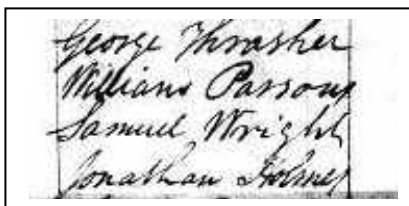 George Thrasher
Williams Parsons
Samuel Wright
Jonathan Holmes